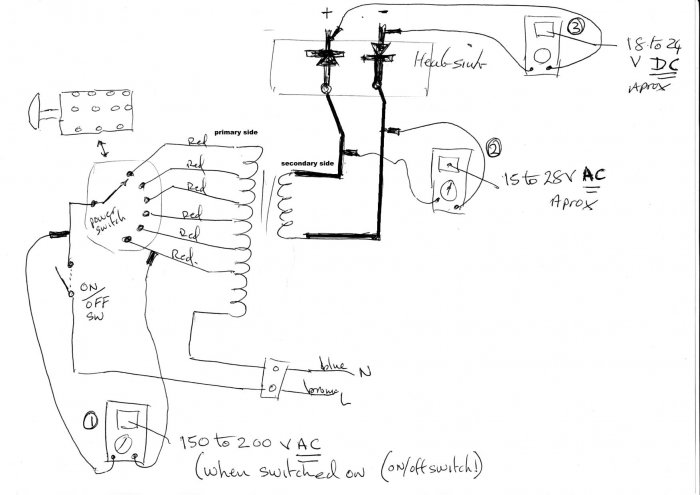 + -
③
18 to 24
V DC
Aprox
Heat sink
Red
primary side
Red
secondary side
②
15 to 28V AC
Aprox
Red
power
switch
Red
Red
Red.
ON/
OFF
SW
blue N
brown L
①
150 to 200 V AC
(when switched on (on/off switch!)